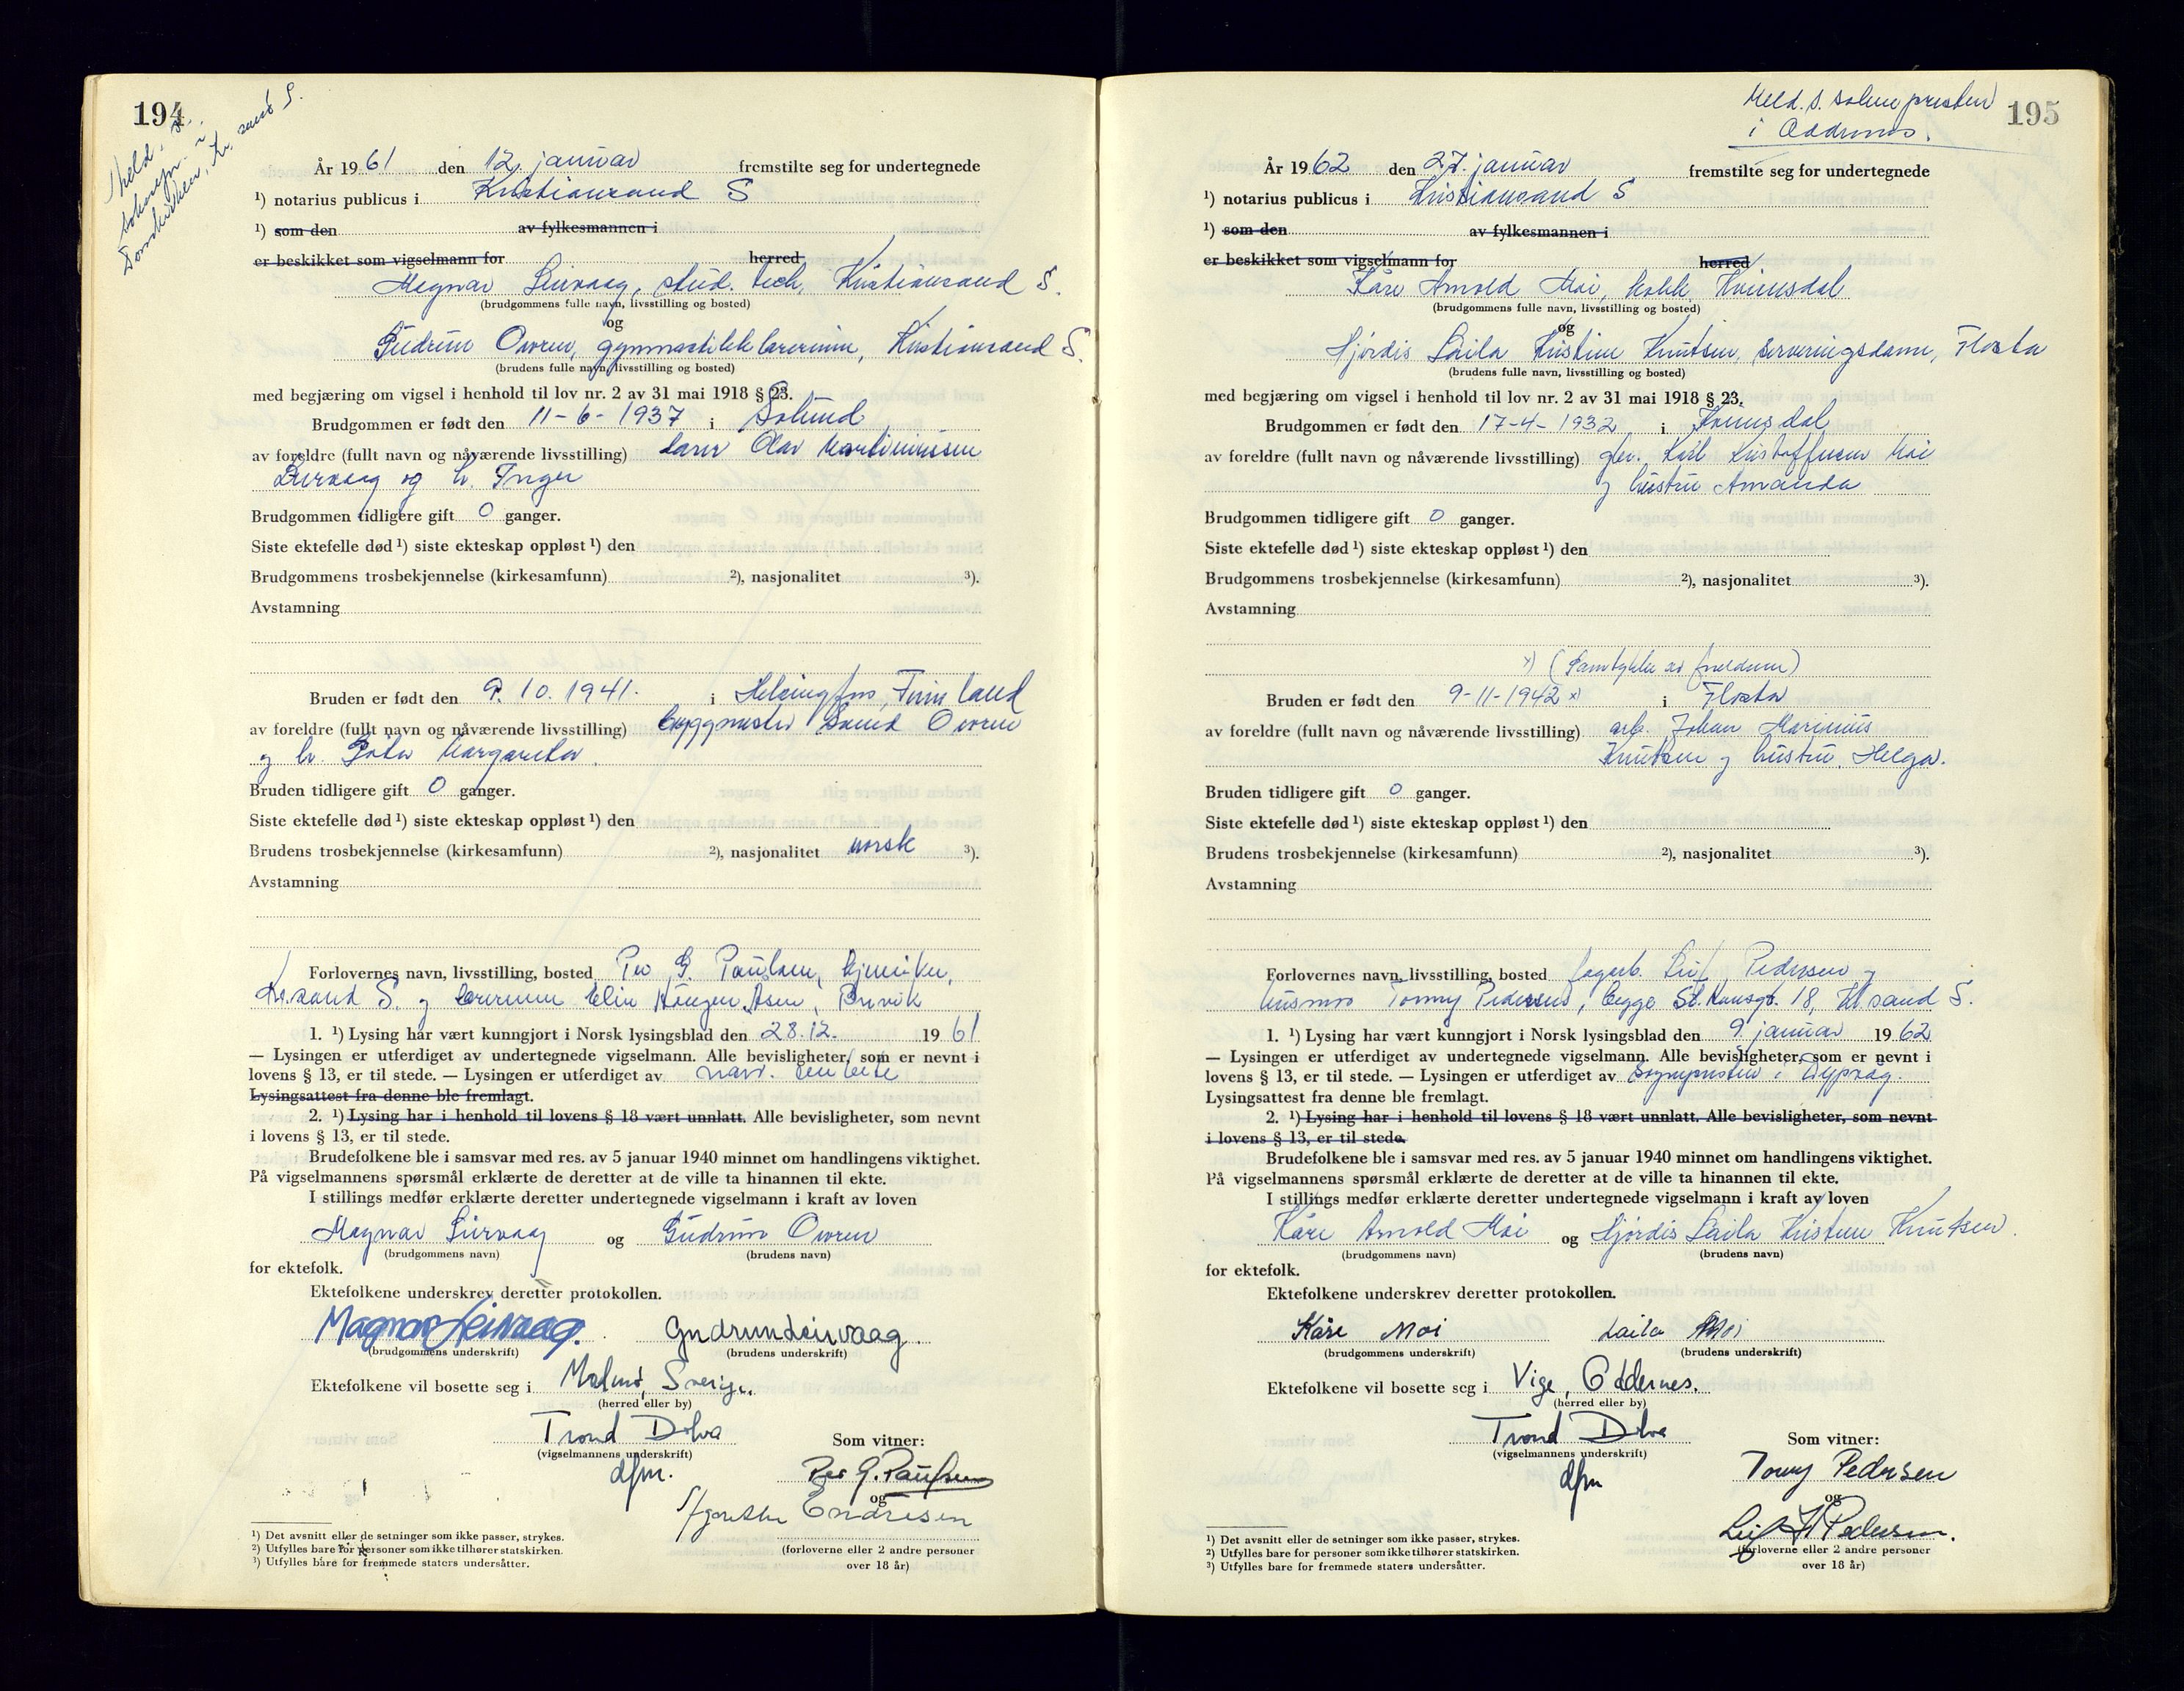 194
Meld. s.
soknepr. i
Domkirken, Kr.sand S.
År 1961 den 12. januar fremstilte seg for undertegnede
¹) notarius publicus i Kristiansand S
¹) som den av fylkesmannen i
er beskikket som vigselmann for herred
Magnar Leirvaag, stud. tech, Kristiansand S.
(brudgommens fulle navn, livsstilling og bosted)
og
Gudrun Ovren, gymnastikklærerinne, Kristiansand S.
(brudens fulle navn, livsstilling og bosted)
med begjæring om vigsel i henhold til lov nr. 2 av 31 mai 1918 § 23.
Brudgommen er født den 11-6-1937 i Solund
av foreldre (fullt navn og nåværende livsstilling) lærer Olav Martiniussen
Leirvaag og h. Inger
Brudgommen tidligere gift 0 ganger.
Siste ektefelle død ¹) siste ekteskap oppløst ¹) den
Brudgommens trosbekjennelse (kirkesamfunn) ²), nasjonalitet ³).
Avstamning
Bruden er født den 9. 10. 1941. i Helsingfors, Finnland
av foreldre (fullt navn og nåværende livsstilling) byggmester Svend Ovren
og h. Gota Margareta.
Bruden tidligere gift 0 ganger.
Siste ektefelle død ¹) siste ekteskap oppløst ¹) den
Brudens trosbekjennelse (kirkesamfunn) ²), nasjonalitet norsk ³).
Avstamning
Forlovernes navn, livsstilling, bosted Per G. Paulsen, kjemiker,
Kr.sand S. og lærerinne Elin Haugen Åsen, Brevik
1. ¹) Lysing har vært kunngjort i Norsk lysingsblad den 28.12. 1961
— Lysingen er utferdiget av undertegnede vigselmann. Alle bevisligheter, som er nevnt i
lovens § 13, er til stede. — Lysingen er utferdiget av nærv. embete
Lysingsattest fra denne ble fremlagt.
2. ¹) Lysing har i henhold til lovens § 18 vært unnlatt. Alle bevisligheter, som nevnt
i lovens § 13, er til stede.
Brudefolkene ble i samsvar med res. av 5 januar 1940 minnet om handlingens viktighet.
På vigselmannens spørsmål erklærte de deretter at de ville ta hinannen til ekte.
I stillings medfør erklærte deretter undertegnede vigselmann i kraft av loven
Magnar Leirvaag og Gudrun Ovren
(brudgommens navn) (brudens navn)
for ektefolk.
Ektefolkene underskrev deretter protokollen.
Magnar Leirvaag. Gudrun Leirvaag.
(brudgommens underskrift) (brudens underskrift)
Ektefolkene vil bosette seg i Malmö, Sverige.
(herred eller by)
Trond Dolva Som vitner:
(vigselmannens underskrift)
dfm. Per G. Paulsen
og
Endresen
¹) Det avsnitt eller de setninger som ikke passer, strykes.
²) Utfylles bare for personer som ikke tilhører statskirken. (forloverne eller 2 andre personer
³) Utfylles bare for fremmede staters undersåtter. over 18 år)
195
Meld. s. soknepresten
i Oddernes.
År 1962 den 27. januar fremstilte seg for undertegnede
¹) notarius publicus i Kristiansand S
¹) som den av fylkesmannen i
er beskikket som vigselmann for herred
Kåre Arnold Moi, kokk, Kvinesdal
(brudgommens fulle navn, livsstilling og bosted)
og
Hjørdis Laila Kristine Knutsen, serveringsdame, Flosta
(brudens fulle navn, livsstilling og bosted)
med begjæring om vigsel i henhold til lov nr. 2 av 31 mai 1918 § 23.
Brudgommen er født den 17-4-1932 i Kvinesdal
av foreldre (fullt navn og nåværende livsstilling) gbr. Karl Kristoffersen Moi
og hustru Amanda
Brudgommen tidligere gift 0 ganger.
Siste ektefelle død ¹) siste ekteskap oppløst ¹) den
Brudgommens trosbekjennelse (kirkesamfunn) ²), nasjonalitet ³).
Avstamning
x) (Samtykke av foreldrene)
Bruden er født den 9-11-1942 x) i Flosta
av foreldre (fullt navn og nåværende livsstilling) arb. Johan Marinius
Knutsen og hustru, Helga.
Bruden tidligere gift 0 ganger.
Siste ektefelle død ¹) siste ekteskap oppløst ¹) den
Brudens trosbekjennelse (kirkesamfunn) ²), nasjonalitet ³).
Avstamning
Forlovernes navn, livsstilling, bosted fagarb. Leif Pedersen og
husmor Tonny Pedersen, begge St. Hansgt. 18, Kr.sand S.
1. ¹) Lysing har vært kunngjort i Norsk lysingsblad den 9. januar 1962
— Lysingen er utferdiget av undertegnede vigselmann. Alle bevisligheter, som er nevnt i
lovens § 13, er til stede. — Lysingen er utferdiget av Sognepresten i Dypvåg.
Lysingsattest fra denne ble fremlagt.
2. ¹) Lysing har i henhold til lovens § 18 vært unnlatt. Alle bevisligheter, som nevnt
i lovens § 13, er til stede.
Brudefolkene ble i samsvar med res. av 5 januar 1940 minnet om handlingens viktighet.
På vigselmannens spørsmål erklærte de deretter at de ville ta hinannen til ekte.
I stillings medfør erklærte deretter undertegnede vigselmann i kraft av loven
Kåre Arnold Moi og Hjørdis Laila Kristine Knutsen.
(brudgommens navn) (brudens navn)
for ektefolk.
Ektefolkene underskrev deretter protokollen.
Kåre Moi Laila Moi
(brudgommens underskrift) (brudens underskrift)
Ektefolkene vil bosette seg i Vige, Oddernes.
(herred eller by)
Trond Dolva Som vitner:
(vigselmannens underskrift)
dfm Tonny Pedersen
og
Leif H Pedersen.
¹) Det avsnitt eller de setninger som ikke passer, strykes.
²) Utfylles bare for personer som ikke tilhører statskirken. (forloverne eller 2 andre personer
³) Utfylles bare for fremmede staters undersåtter. over 18 år)